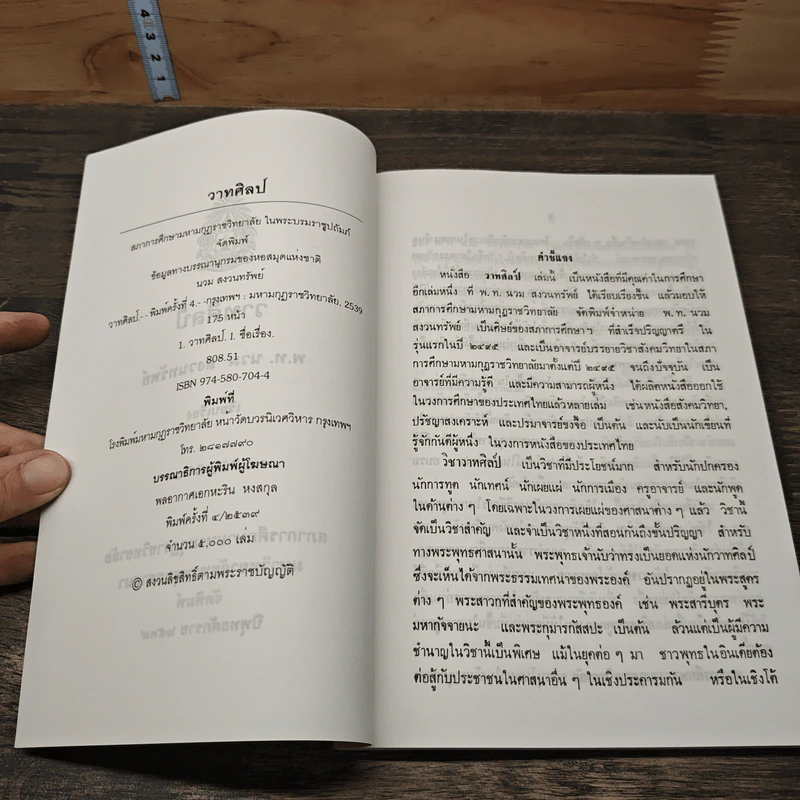 4
3
2
1
วาทศิลป์
สภาการศึกษามหามกุฏราชวิทยาลัย ในพระบรมราชูปถัมภ์
จัดพิมพ์
ข้อมูลทางบรรณานุกรมของหอสมุดแห่งชาติ
นวม สงวนทรัพย์
วาทศิลป์.- -พิมพ์ครั้งที่ 4.- -กรุงเทพฯ : มหามกุฏราชวิทยาลัย, 2539
175 หน้า
1. วาทศิลป์. I. ชื่อเรื่อง.
808.51
ISBN 974-580-704-4
พิมพ์ที่
โรงพิมพ์มหามกุฏราชวิทยาลัย หน้าวัดบวรนิเวศวิหาร กรุงเทพฯ
โทร. ๒๘๑๗๗๙๐
บรรณาธิการผู้พิมพ์ผู้โฆษณา
พลอากาศเอกหะริน หงสกุล
พิมพ์ครั้งที่ ๔/๒๕๓๙
จำนวน ๕,๐๐๐ เล่ม
© สงวนลิขสิทธิ์ตามพระราชบัญญัติ
คำชี้แจง
หนังสือ วาทศิลป์ เล่มนี้ เป็นหนังสือที่มีคุณค่าในการศึกษา
อีกเล่มหนึ่ง ที่ พ.ท. นวม สงวนทรัพย์ ได้เรียบเรียงขึ้น แล้วมอบให้
สภาการศึกษามหามกุฏราชวิทยาลัย จัดพิมพ์จำหน่าย พ.ท. นวม
สงวนทรัพย์ เป็นศิษย์ของสภาการศึกษาฯ ที่สำเร็จปริญญาตรี ใน
รุ่นแรกในปี ๒๔๙๕ และเป็นอาจารย์บรรยายวิชาสังคมวิทยาในสภา
การศึกษามหามกุฏราชวิทยาลัยมาตั้งแต่ปี ๒๔๙๕ จนถึงปัจจุบัน เป็น
อาจารย์ที่มีความรู้ดี และมีความสามารถผู้หนึ่ง ได้ผลิตหนังสือออกใช้
ในวงการศึกษาของประเทศไทยแล้วหลายเล่ม เช่นหนังสือสังคมวิทยา,
ปรัชญาสงเคราะห์ และปรมาจารย์ขงจื้อ เป็นต้น และนับเป็นนักเขียนที่
รู้จักกันดีผู้หนึ่ง ในวงการหนังสือของประเทศไทย
วิชาวาทศิลป์ เป็นวิชาที่มีประโยชน์มาก สำหรับนักปกครอง
นักการทูต นักเทศน์ นักเผยแผ่ นักการเมือง ครูอาจารย์ และนักพูด
ในด้านต่าง ๆ โดยเฉพาะในวงการเผยแผ่ของศาสนาต่าง ๆ แล้ว วิชานี้
จัดเป็นวิชาสำคัญ และจำเป็นวิชาหนึ่งที่สอนกันถึงขั้นปริญญา สำหรับ
ทางพระพุทธศาสนานั้น พระพุทธเจ้านับว่าทรงเป็นยอดแห่งนักวาทศิลป์
ซึ่งจะเห็นได้จากพระธรรมเทศนาของพระองค์ อันปรากฏอยู่ในพระสูตร
ต่าง ๆ พระสาวกที่สำคัญของพระพุทธองค์ เช่น พระสารีบุตร พระ
มหากัจจายนะ และพระกุมารกัสสปะ เป็นต้น ล้วนแต่เป็นผู้มีความ
ชำนาญในวิชานี้เป็นพิเศษ แม้ในยุคต่อ ๆ มา ชาวพุทธในอินเดียต้อง
ต่อสู้กับประชาชนในศาสนาอื่น ๆ ในเชิงประคารมกัน หรือในเชิงโต้